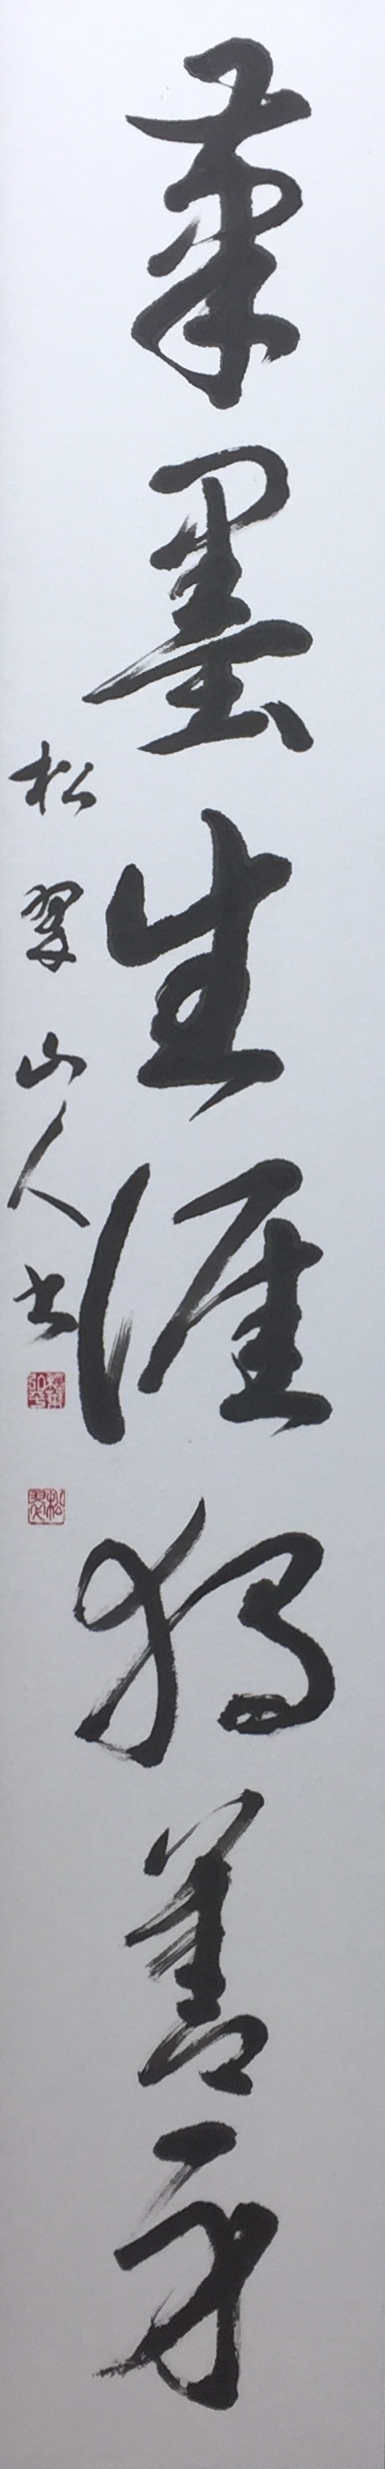 筆墨生涯獨善身
松翠山人書